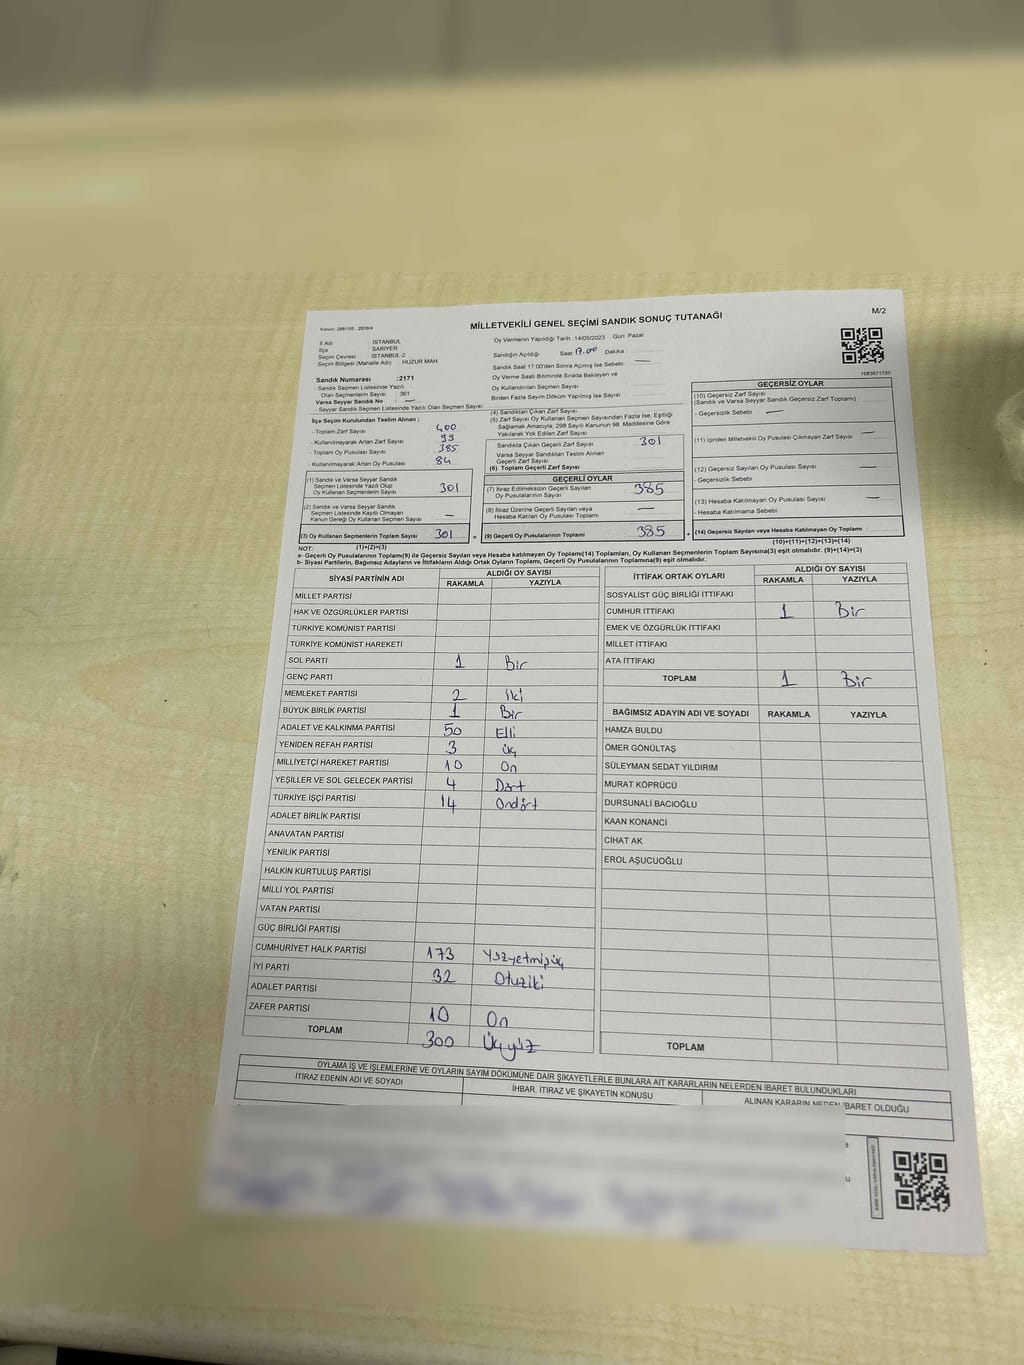 Kanun: 298/105 , 2839/4
MİLLETVEKİLİ GENEL SEÇİMİ SANDIK SONUÇ TUTANAĞI
M/2
İl Adı İSTANBUL
İlçe SARIYER
Seçim Çevresi İSTANBUL-2
Seçim Bölgesi (Mahalle Adı) : HUZUR MAH.
Sandık Numarası :2171
- Sandık Seçmen Listesinde Yazılı
Olan Seçmenlerin Sayısı : 361
Varsa Seyyar Sandık No : —
- Seyyar Sandık Seçmen Listesinde Yazılı Olan Seçmen Sayısı
İlçe Seçim Kurulundan Teslim Alınan ;
- Toplam Zarf Sayısı 400
- Kullanılmayarak Artan Zarf Sayısı 99
- Toplam Oy Pusulası Sayısı 385
- Kullanılmayarak Artan Oy Pusulası 84
(1) Sandık ve Varsa Seyyar Sandık
Seçmen Listesinde Yazılı Olup
Oy Kullanan Seçmenlerin Sayısı 301
(2) Sandık ve Varsa Seyyar Sandık
Seçmen Listesinde Kayıtlı Olmayan
Kanun Gereği Oy Kullanan Seçmen Sayısı —
(3) Oy Kullanan Seçmenlerin Toplam Sayısı 301
(1)+(2)=(3)
Oy Vermenin Yapıldığı Tarih : 14/05/2023 Gün: Pazar
Sandığın Açıldığı Saat 17.00 Dakika :
Sandık Saat 17:00'den Sonra Açılmış İse Sebebi : —
Oy Verme Saati Bitiminde Sırada Bekleyen ve
Oy Kullandırılan Seçmen Sayısı
Birden Fazla Sayım Döküm Yapılmış İse Sayısı
(4) Sandıktan Çıkan Zarf Sayısı
(5) Zarf Sayısı Oy Kullanan Seçmen Sayısından Fazla İse, Eşitliği
Sağlamak Amacıyla; 298 Sayılı Kanunun 98. Maddesine Göre
Yakılarak Yok Edilen Zarf Sayısı
Sandıkta Çıkan Geçerli Zarf Sayısı 301
Varsa Seyyar Sandıktan Teslim Alınan
Geçerli Zarf Sayısı
(6) Toplam Geçerli Zarf Sayısı
GEÇERLİ OYLAR
(7) İtiraz Edilmeksizin Geçerli Sayılan
Oy Pusulalarının Sayısı 385
(8) İtiraz Üzerine Geçerli Sayılan veya
Hesaba Katılan Oy Pusulası Toplamı —
= (9) Geçerli Oy Pusulalarının Toplamı 385
1083871705
GEÇERSİZ OYLAR
(10) Geçersiz Zarf Sayısı
(Sandık ve Varsa Seyyar Sandık Geçersiz Zarf Toplamı)
- Geçersizlik Sebebi : —
(11) İçinden Milletvekili Oy Pusulası Çıkmayan Zarf Sayısı —
(12) Geçersiz Sayılan Oy Pusulası Sayısı —
- Geçersizlik Sebebi
(13) Hesaba Katılmayan Oy Pusulası Sayısı —
- Hesaba Katılmama Sebebi
+ (14) Geçersiz Sayılan veya Hesaba Katılmayan Oy Toplamı
(10)+(11)+(12)+(13)=(14)
NOT:
a- Geçerli Oy Pusulalarının Toplamı(9) ile Geçersiz Sayılan veya Hesaba katılmayan Oy Toplamı(14) Toplamları, Oy Kullanan Seçmenlerin Toplam Sayısına(3) eşit olmalıdır. (9)+(14)=(3)
b- Siyasi Partilerin, Bağımsız Adayların ve İttifakların Aldığı Ortak Oyların Toplamı, Geçerli Oy Pusulalarının Toplamına(9) eşit olmalıdır.
SİYASİ PARTİNİN ADI
ALDIĞI OY SAYISI
RAKAMLA YAZIYLA
MİLLET PARTİSİ
HAK VE ÖZGÜRLÜKLER PARTİSİ
TÜRKİYE KOMÜNİST PARTİSİ
TÜRKİYE KOMÜNİST HAREKETİ
SOL PARTİ 1 Bir
GENÇ PARTİ
MEMLEKET PARTİSİ 2 İki
BÜYÜK BİRLİK PARTİSİ 1 Bir
ADALET VE KALKINMA PARTİSİ 50 Elli
YENİDEN REFAH PARTİSİ 3 üç
MİLLİYETÇİ HAREKET PARTİSİ 10 On
YEŞİLLER VE SOL GELECEK PARTİSİ 4 Dört
TÜRKİYE İŞÇİ PARTİSİ 14 Ondört
ADALET BİRLİK PARTİSİ
ANAVATAN PARTİSİ
YENİLİK PARTİSİ
HALKIN KURTULUŞ PARTİSİ
MİLLİ YOL PARTİSİ
VATAN PARTİSİ
GÜÇ BİRLİĞİ PARTİSİ
CUMHURİYET HALK PARTİSİ 173 Yüzyetmişüç
İYİ PARTİ 32 Otuziki
ADALET PARTİSİ
ZAFER PARTİSİ 10 On
TOPLAM 300 Üçyüz
İTTİFAK ORTAK OYLARI
ALDIĞI OY SAYISI
RAKAMLA YAZIYLA
SOSYALİST GÜÇ BİRLİĞİ İTTİFAKI
CUMHUR İTTİFAKI 1 Bir
EMEK VE ÖZGÜRLÜK İTTİFAKI
MİLLET İTTİFAKI
ATA İTTİFAKI
TOPLAM 1 Bir
BAĞIMSIZ ADAYIN ADI VE SOYADI RAKAMLA YAZIYLA
HAMZA BULDU
ÖMER GÖNÜLTAŞ
SÜLEYMAN SEDAT YILDIRIM
MURAT KÖPRÜCÜ
DURSUNALİ BACIOĞLU
KAAN KONANCİ
CİHAT AK
EROL AŞUCUOĞLU
TOPLAM
OYLAMA İŞ VE İŞLEMLERİNE VE OYLARIN SAYIM DÖKÜMÜNE DAİR ŞİKAYETLERLE BUNLARA AİT KARARLARIN NELERDEN İBARET BULUNDUKLARI
İTİRAZ EDENİN ADI VE SOYADI İHBAR, İTİRAZ VE ŞİKAYETİN KONUSU ALINAN KARARIN NEDEN İBARET OLDUĞU